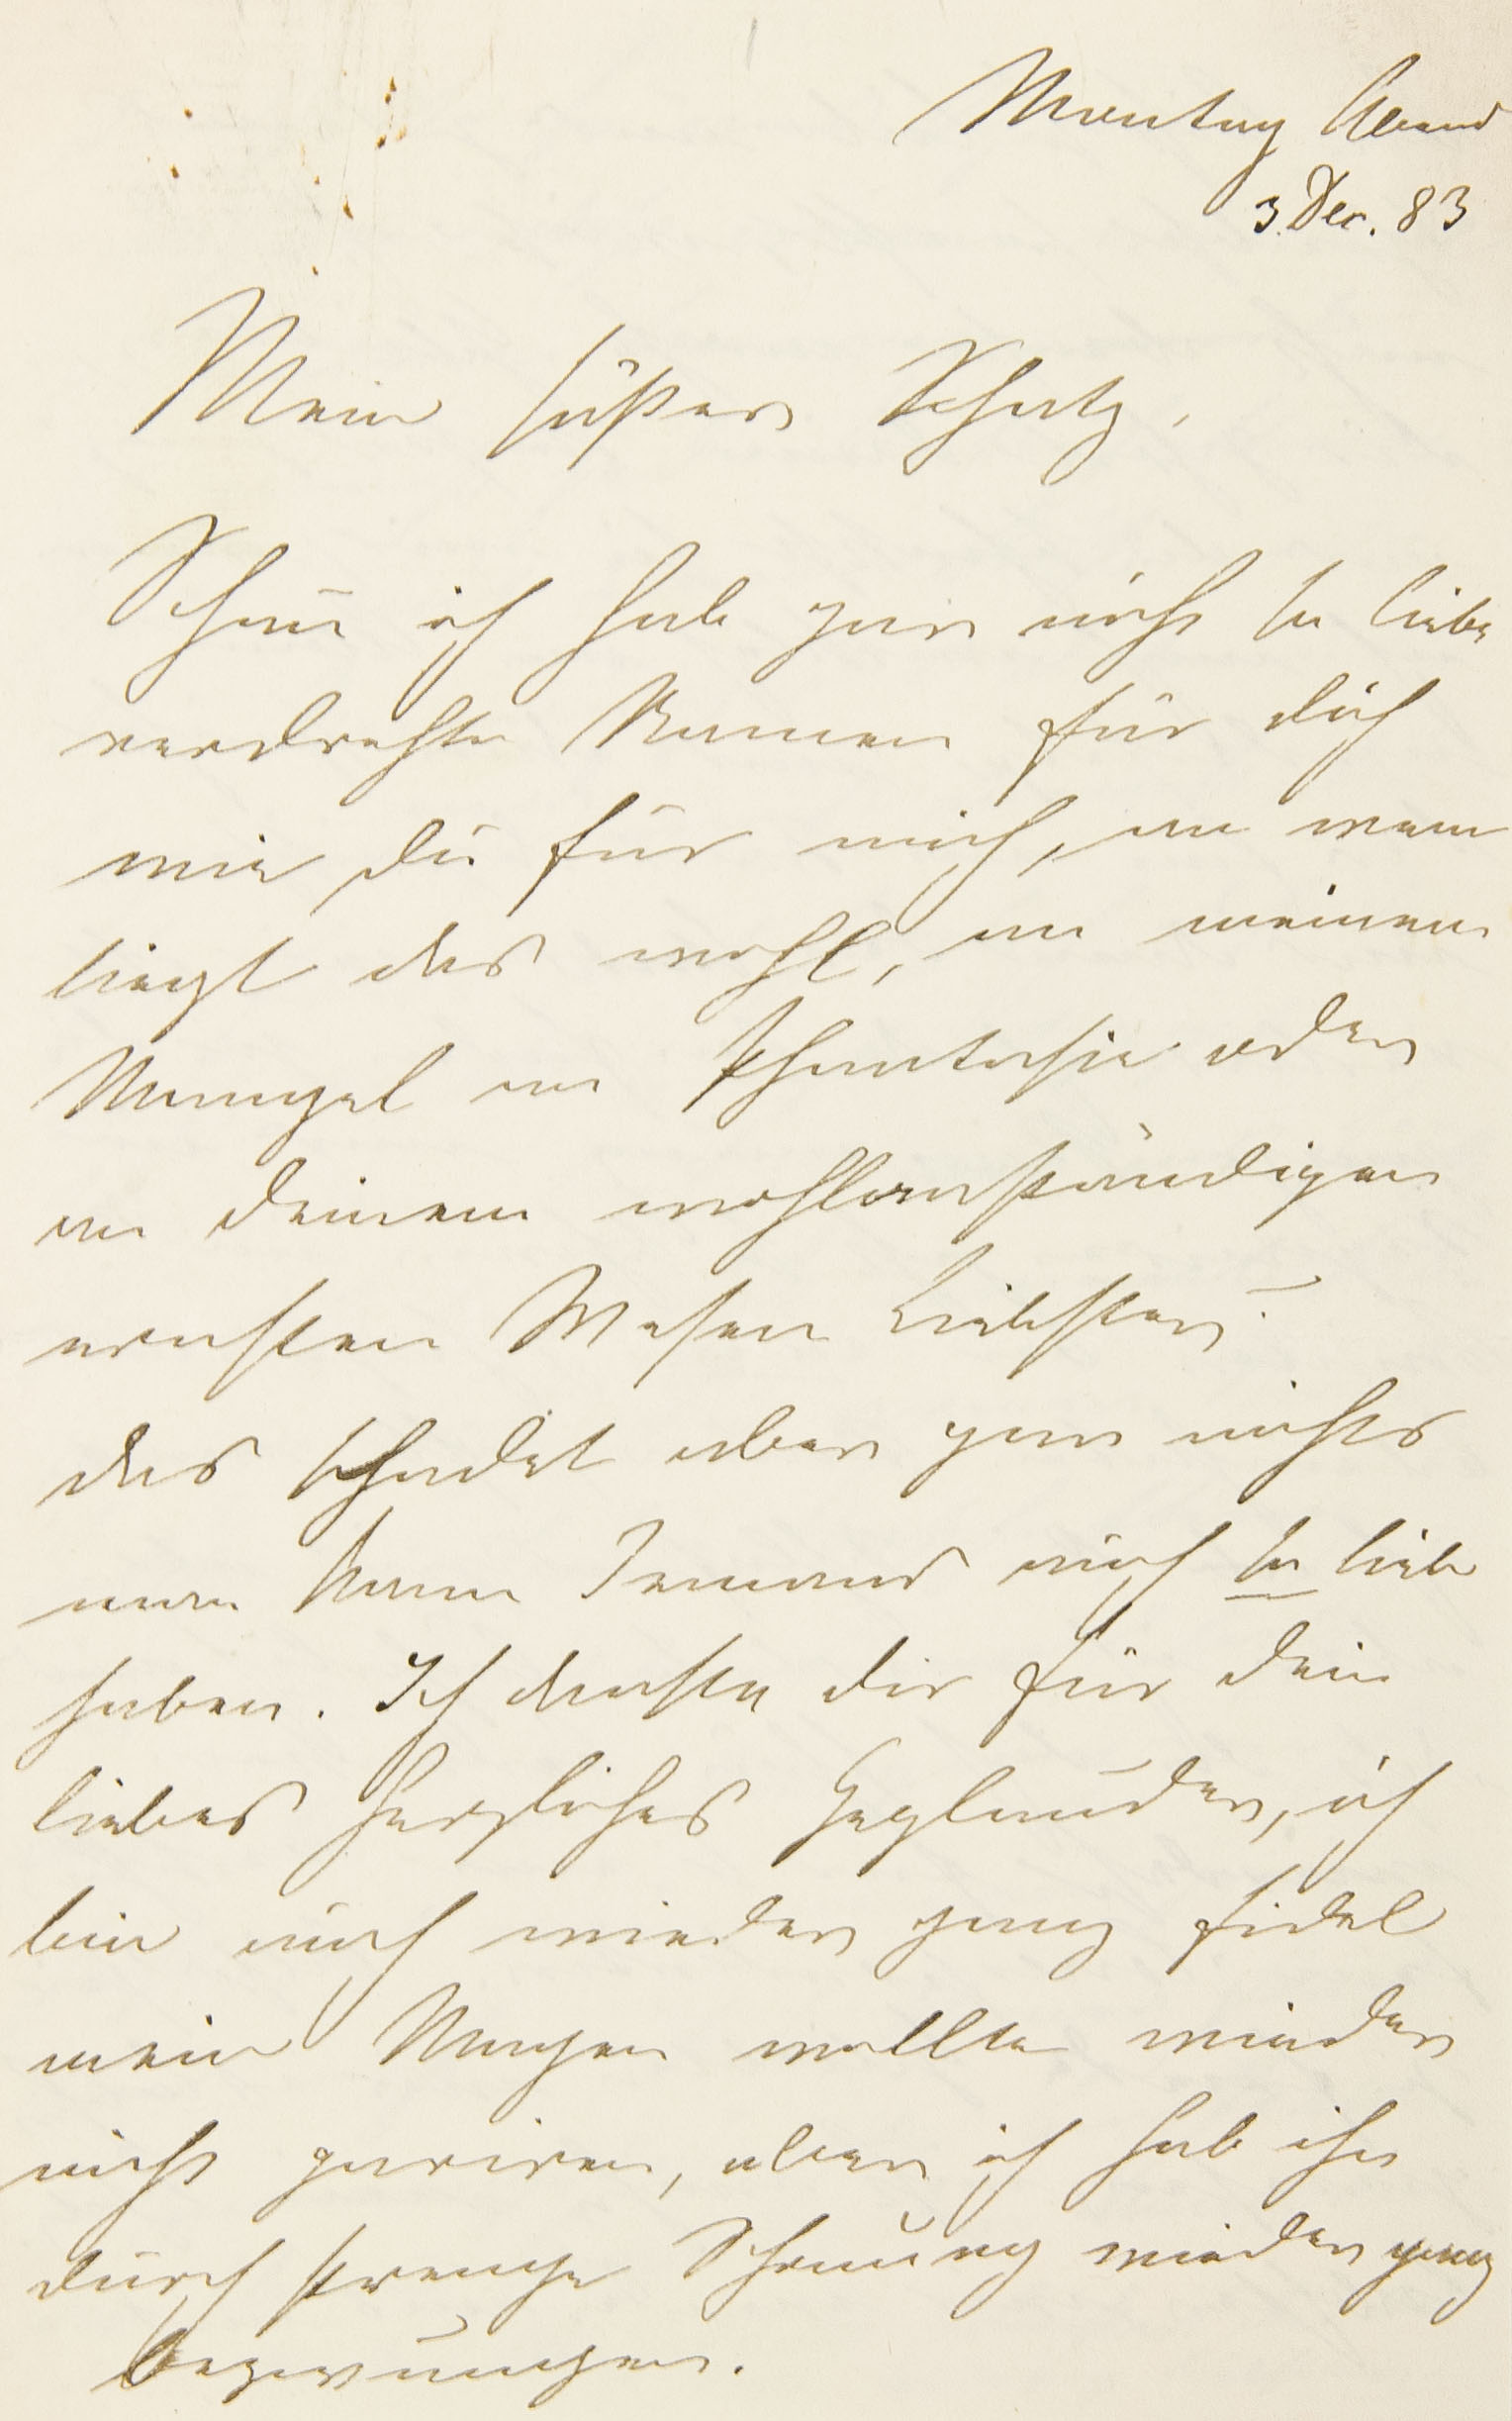 Montag Abend
3. Dec. 83
Mein süßer Schatz,
Schau ich hab gar nicht so liebe
verdrehte Namen für dich
wie du für mich, an wem
liegt das wohl, an meinem
Mangel an Phantasie oder
an deinem wohlanständigen
ernsten Wesen Liebster?
das schadet aber gar nichts
man kann Jemand auch so lieb
haben. Ich danke dir für dein
liebes herzliches Geplauder, ich
bin auch wieder ganz fidel
mein Magen wollte wieder
nicht pariren, aber ich hab ihn
durch strenge Schonung wieder ganz
bezwungen.